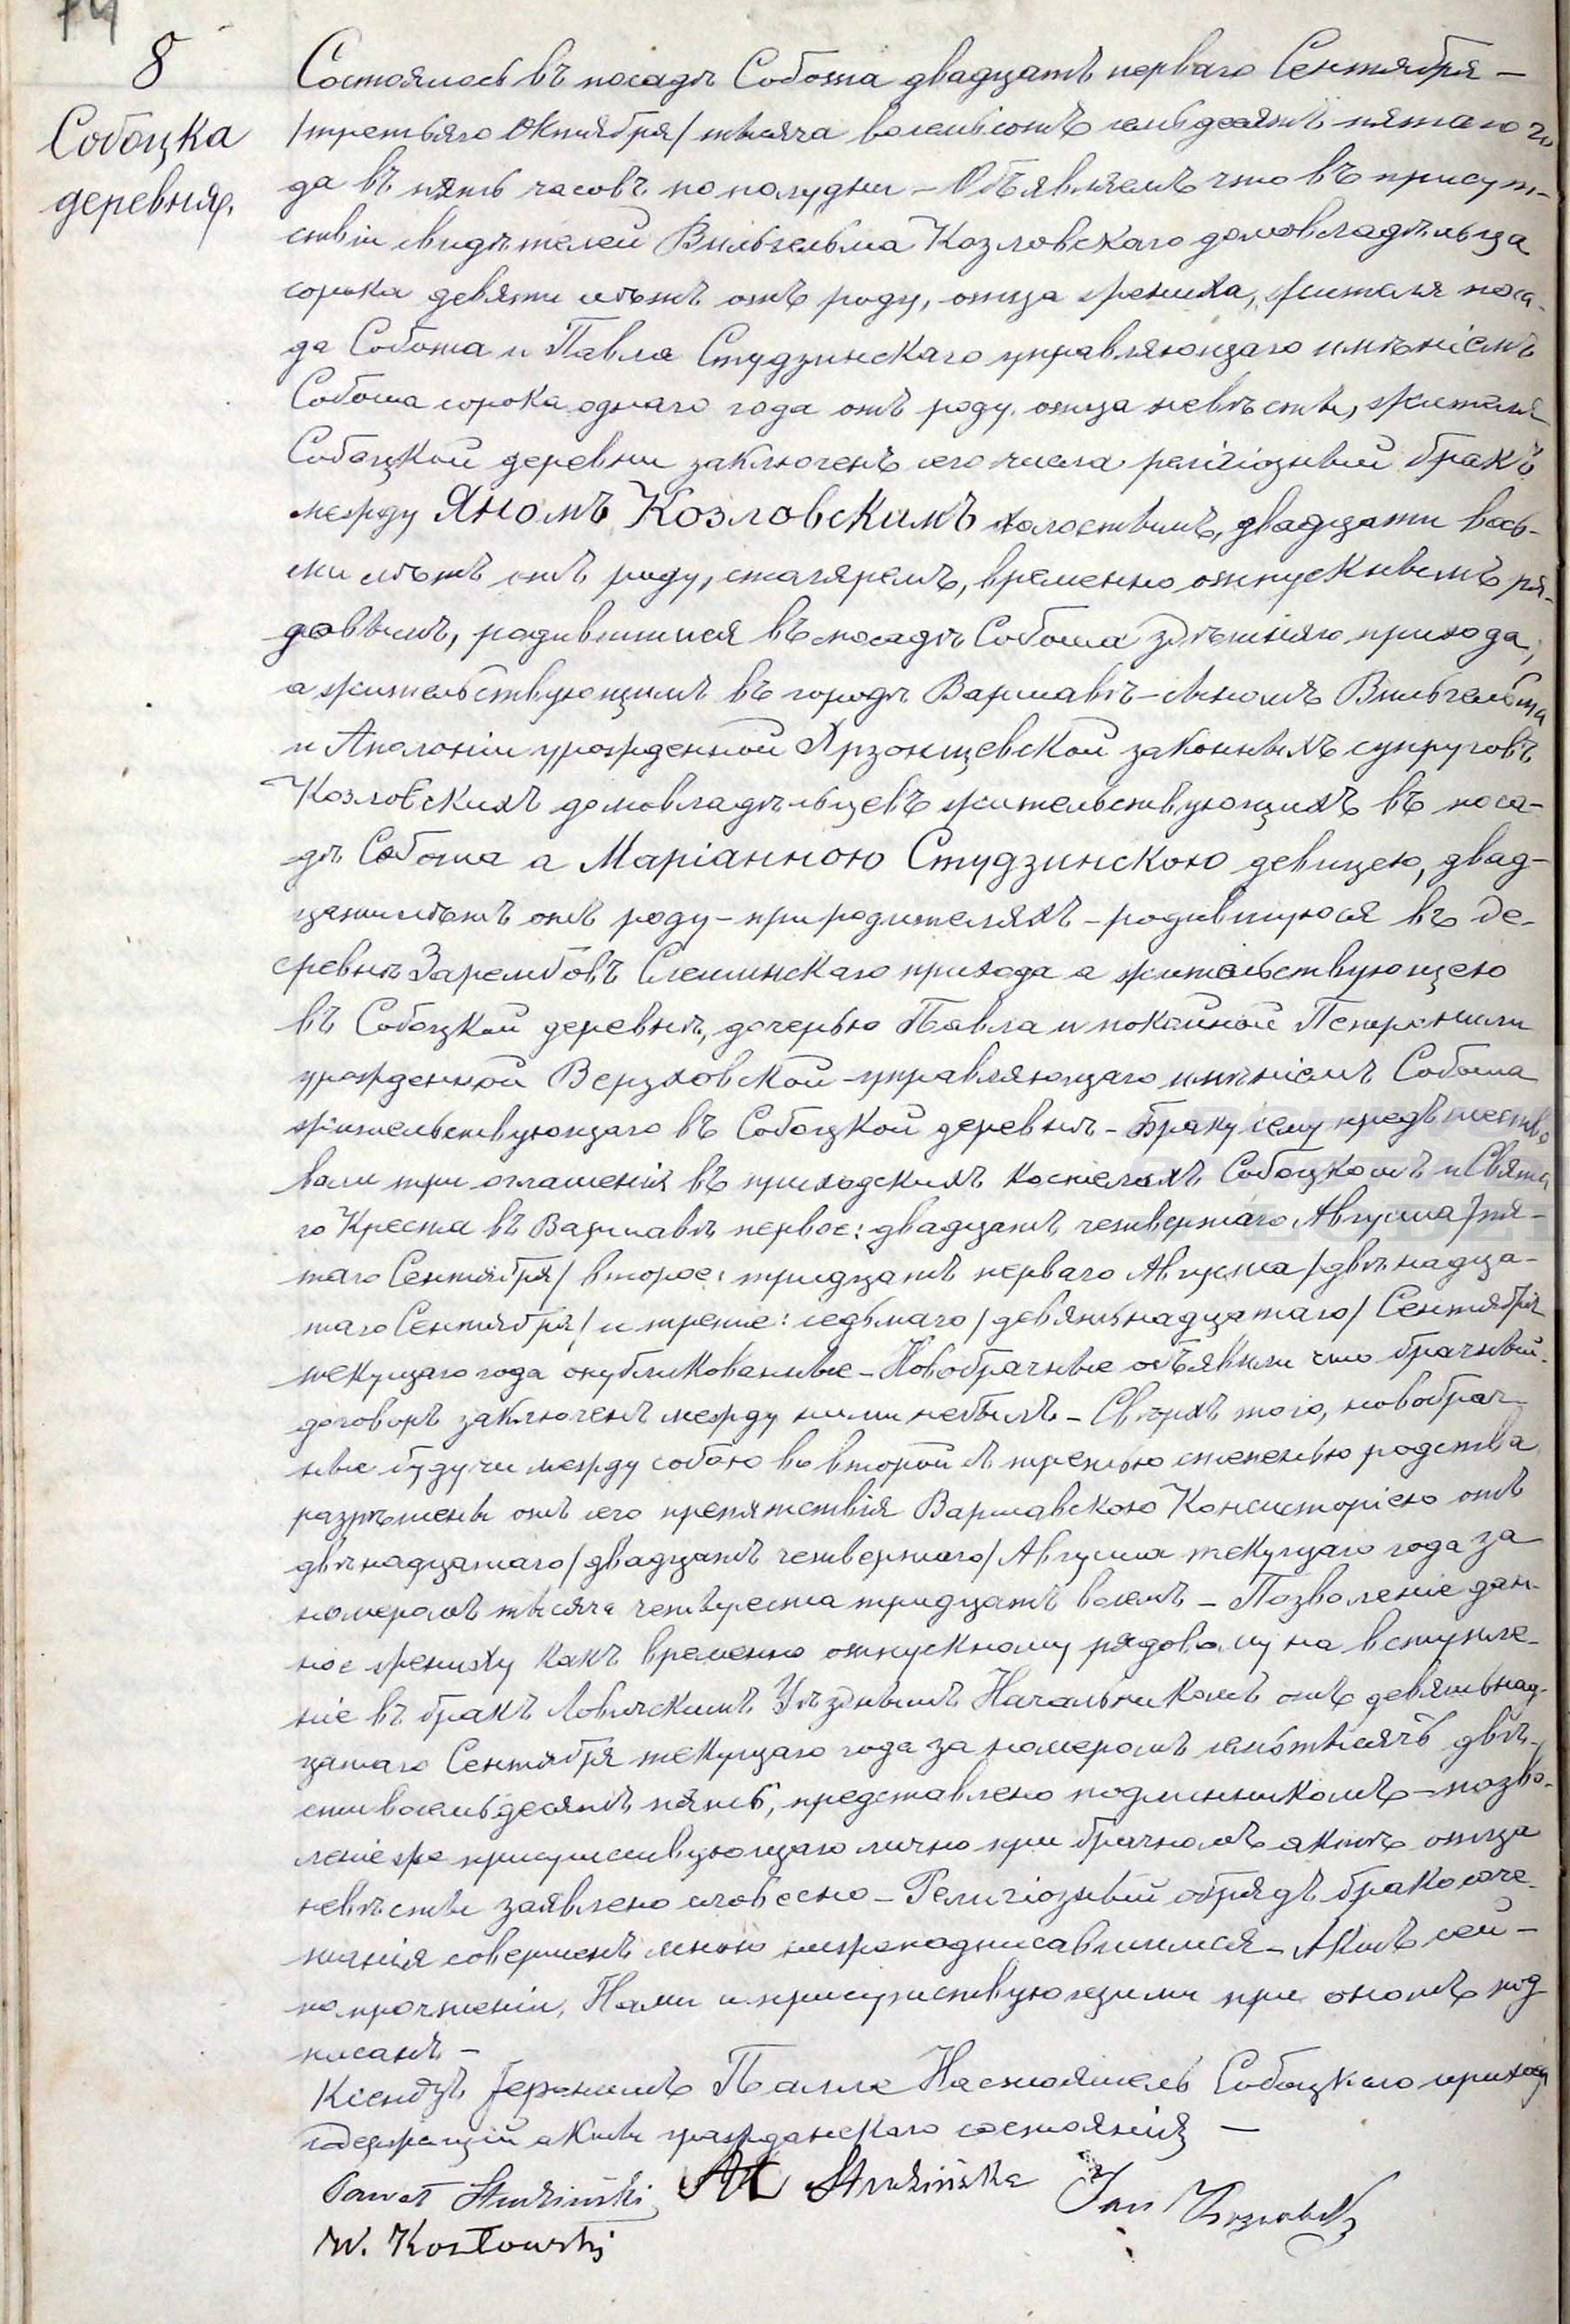 74
8
Собоцка
деревня.
Состоялось въ посадѣ Собота двадцать перваго Сентября —
/третьяго Октября/ тысяча восемьсотъ семьдесятъ пятаго го
да въ пять часовъ по полудни – Объявляемъ что въ присут-
ствіи свидѣтелей Вильгельма Козловскаго домовладѣльца
сорока девяти лѣтъ отъ роду, отца жениха, жителя поса-
да Собота и Павла Студзинскаго управляющаго имѣніемъ
Собота сорока одного года отъ роду отца невѣсты, жителя
Собоцкой деревни заключенъ сего числа религіозный бракъ
между Яномъ Козловскимъ холостымъ, двадцати вось-
ми лѣтъ отъ роду, столяремъ, временно отпускнымъ ря-
довымъ, родившимся въ посадѣ Собота здѣшняго прихода,
а жительствующимъ въ городѣ Варшавѣ – сыномъ Вильгельма
и Аполоніи урожденной Хрзонщевской законныхъ супруговъ
Козловскихъ домовладѣльцевъ жительствующихъ въ поса-
дѣ Собота а Маріанною Студзинскою девицею, двад-
цати лѣтъ отъ роду – при родителяхъ – родившуюся въ де-
ревнѣ Зарембовъ прихода а жительствующею
въ Собоцкой деревнѣ, дочерью Павла и покойной Петронили
урожденной Верзховской – управляющаго имѣніемъ Собота
жительствующаго въ Собоцкой деревнѣ – Браку сему предъшество
вали три оглашенія въ приходскихъ костелахъ Собоцкомъ и Свята
го Креста въ Варшавѣ первое: двадцать четвертаго Августа /пя-
таго Сентября/ второе: тридцать перваго Августа /двѣнадца-
таго Сентября/ и третіе: седьмаго /девятьнадцатаго/ Сентября
текущаго года опубликованные – Новобрачные объявили что брачный
договоръ заключенъ между ними небылъ – Сверхъ того, новобрач-
ные будучи между собою во второй съ третью степенью родства
разрѣшены отъ сего препятствія Варшавскою Консисторіею отъ
двѣнадцатаго /двадцать четвертаго/ Августа текущаго года за
номеромъ тысяча четыреста тридцать восемь – Позволеніе дан-
ное жениху какъ временно отпускному рядовому на вступле-
ніе въ бракъ Ловичскимъ Уѣзднымъ Начальникомъ отъ девятьнад-
цатаго Сентября текущаго года за номеромъ семь тысячъ двѣ-
сти восемьдесятъ пять, представлено подлинникомъ – позво-
леніе же присутствующаго лично при брачномъ актѣ отца
невѣсты заявлено словесно – Религіозный обрядъ бракосоче-
танія совершенъ мною нижеподписавшимся – Актъ сей –
по прочтеніи, Нами и присутствующими при ономъ под
писанъ –
Ксендзъ Іеронимъ Настоятель Собоцкаго прихода
содержащій акты гражданскаго состоянія —
Paweł Studziński M Studzińska Jan Kozłowski
W. Kozłowski